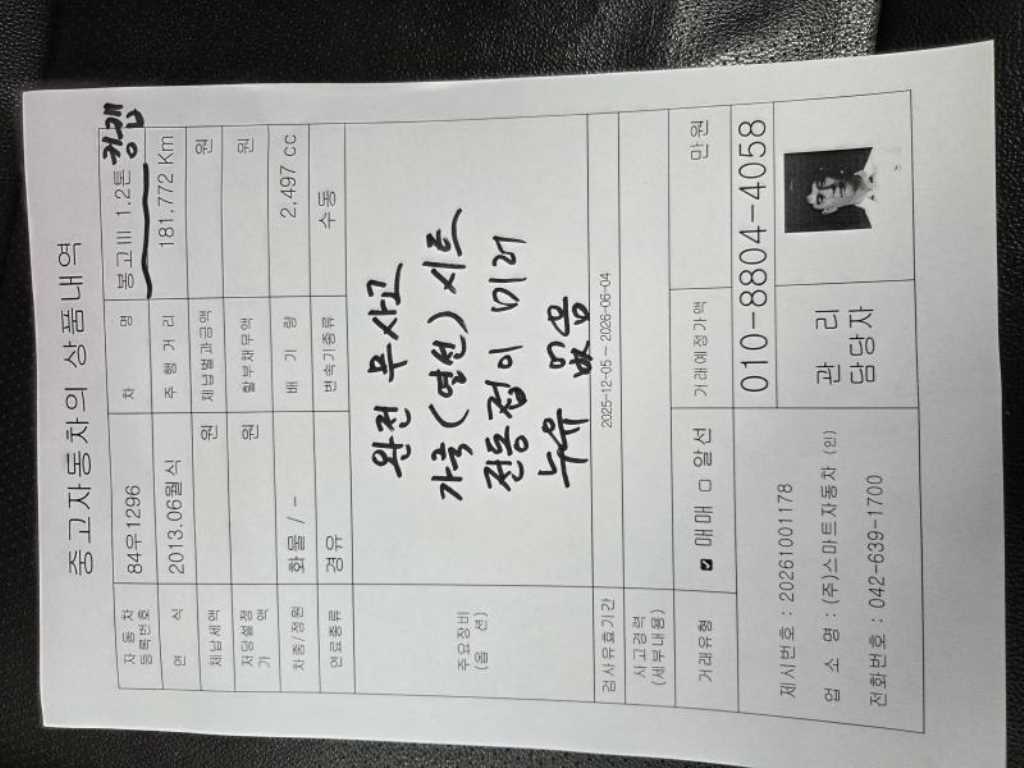 중고자동차의 상품내역
자동차등록번호 84우1296 차 명 봉고III 1.2톤 킹캡
연 식 2013.06월식 주행거리 181.772 Km
체납세액 원 체납범과금액 원
저당설정가액 원 할부채무액 원
차종/정원 화물 / - 배 기 량 2,497 cc
연료종류 경유 변속기종류 수동
주요장비
(옵 션)
완전 무사고
가죽(열선) 시트
전동접이 미러
누유 없음
검사유효기간 2025-12-05 ~ 2026-06-04
사고경력
(세부내용)
거래유형 ☑ 매매 □ 알선 거래예정가액 만원
제시번호 : 20261001178
업 소 명 : (주)스마트자동차 (인)
전화번호 : 042-639-1700
010-8804-4058
관 리
담당자